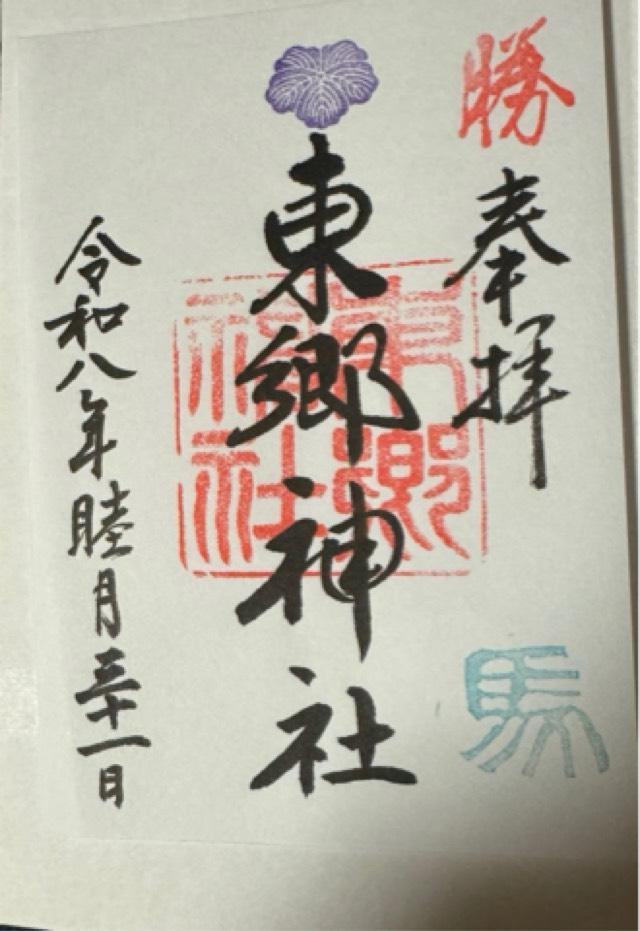 勝
奉拝
馬
東郷神社
東郷神社
令和八年睦月三十一日